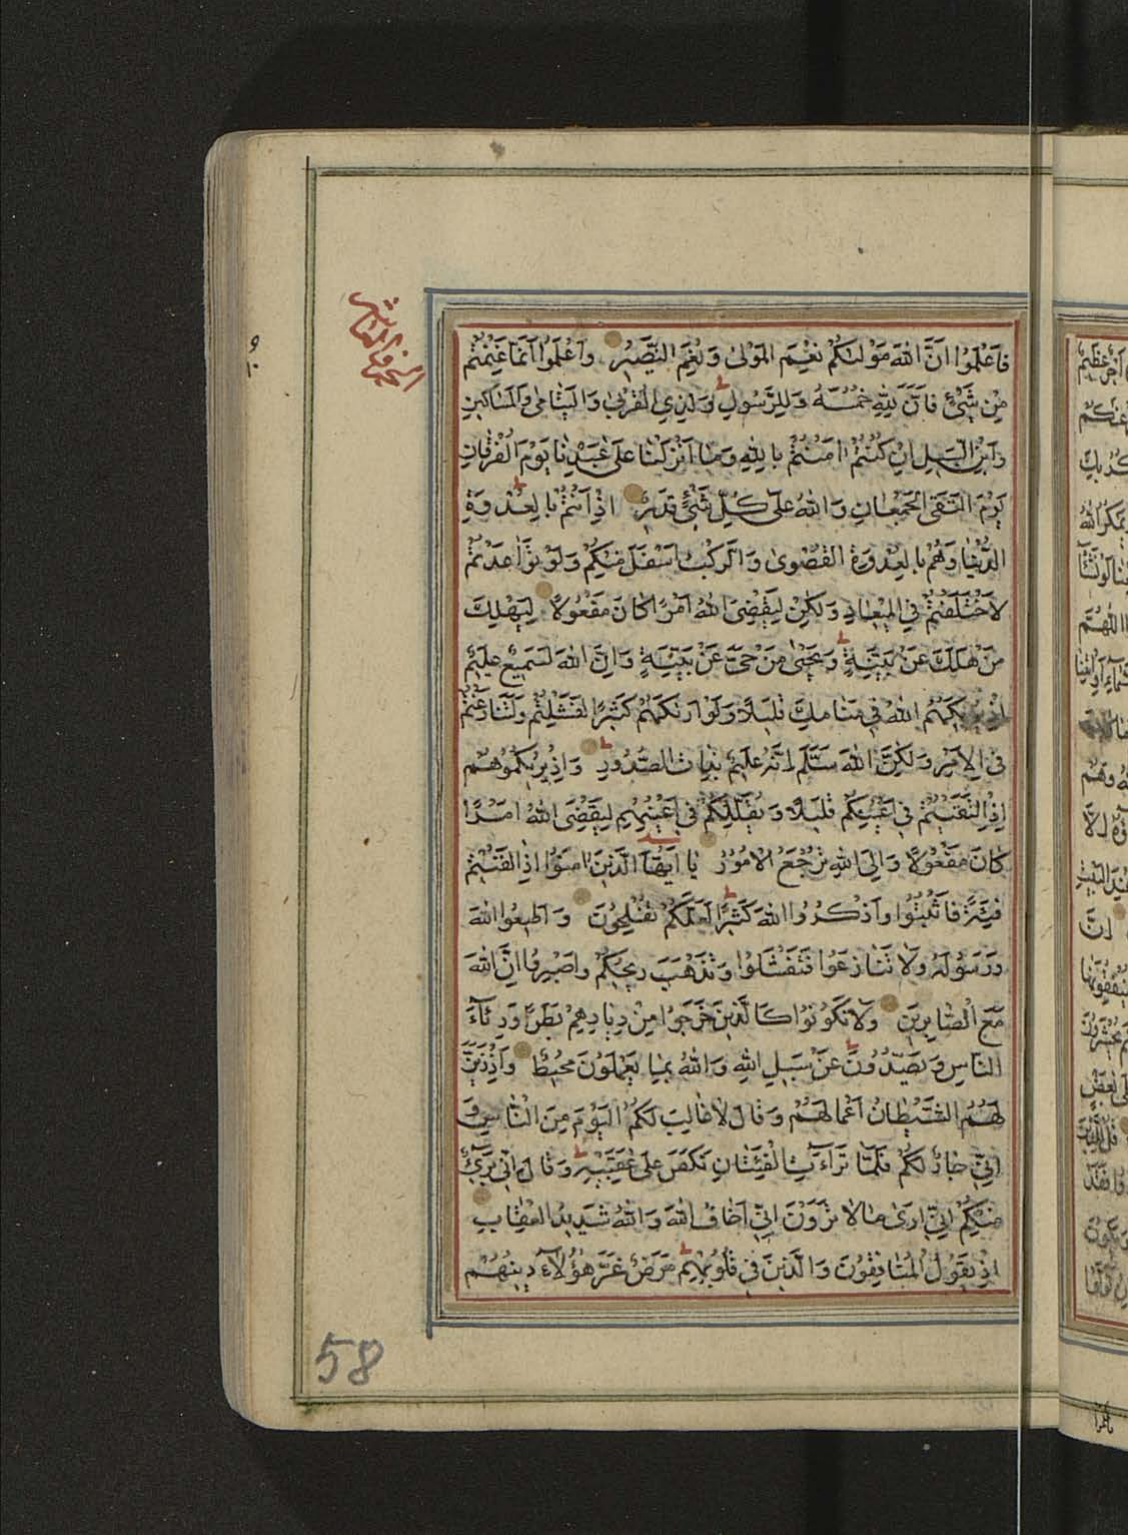 الجزء العاشر
فَاعْلَمُوا اَنَّ اللهَ مَوْلٰىكُمْ نِعْمَ الْمَوْلٰى وَنِعْمَ النَّصِيرُ وَاعْلَمُوا اَنَّمَا غَنِمْتُمْ
مِنْ شَيْءٍ فَاَنَّ لِلّٰهِ خُمُسَهُ وَلِلرَّسُولِ وَلِذِي الْقُرْبٰى وَالْيَتَامٰى وَالْمَسَاكِينِ
وَابْنِ السَّبِيلِ اِنْ كُنْتُمْ اٰمَنْتُمْ بِاللهِ وَمَا اَنْزَلْنَا عَلٰى عَبْدِنَا يَوْمَ الْفُرْقَانِ
يَوْمَ الْتَقَى الْجَمْعَانِ وَاللهُ عَلٰى كُلِّ شَيْءٍ قَدِيرٌ اِذْ اَنْتُمْ بِالْعُدْوَةِ
الدُّنْيَا وَهُمْ بِالْعُدْوَةِ الْقُصْوٰى وَالرَّكْبُ اَسْفَلَ مِنْكُمْ وَلَوْ تَوَاعَدْتُمْ
لَاخْتَلَفْتُمْ فِي الْمِيعَادِ وَلٰكِنْ لِيَقْضِيَ اللهُ اَمْرًا كَانَ مَفْعُولًا لِيَهْلِكَ
مَنْ هَلَكَ عَنْ بَيِّنَةٍ وَيَحْيٰى مَنْ حَيَّ عَنْ بَيِّنَةٍ وَاِنَّ اللهَ لَسَمِيعٌ عَلِيمٌ
اِذْ يُرِيكَهُمُ اللهُ فِي مَنَامِكَ قَلِيلًا وَلَوْ اَرٰىكَهُمْ كَثِيرًا لَفَشِلْتُمْ وَلَتَنَازَعْتُمْ
فِي الْاَمْرِ وَلٰكِنَّ اللهَ سَلَّمَ اِنَّهُ عَلِيمٌ بِذَاتِ الصُّدُورِ وَاِذْ يُرِيكُمُوهُمْ
اِذِ الْتَقَيْتُمْ فِي اَعْيُنِكُمْ قَلِيلًا وَيُقَلِّلُكُمْ فِي اَعْيُنِهِمْ لِيَقْضِيَ اللهُ اَمْرًا
كَانَ مَفْعُولًا وَاِلَى اللهِ تُرْجَعُ الْاُمُورُ يَا اَيُّهَا الَّذِينَ اٰمَنُوا اِذَا لَقِيتُمْ
فِئَةً فَاثْبُتُوا وَاذْكُرُوا اللهَ كَثِيرًا لَعَلَّكُمْ تُفْلِحُونَ وَاَطِيعُوا اللهَ
وَرَسُولَهُ وَلَا تَنَازَعُوا فَتَفْشَلُوا وَتَذْهَبَ رِيحُكُمْ وَاصْبِرُوا اِنَّ اللهَ
مَعَ الصَّابِرِينَ وَلَا تَكُونُوا كَالَّذِينَ خَرَجُوا مِنْ دِيَارِهِمْ بَطَرًا وَرِئَآءَ
النَّاسِ وَيَصُدُّونَ عَنْ سَبِيلِ اللهِ وَاللهُ بِمَا يَعْمَلُونَ مُحِيطٌ وَاِذْ زَيَّنَ
لَهُمُ الشَّيْطَانُ اَعْمَالَهُمْ وَقَالَ لَا غَالِبَ لَكُمُ الْيَوْمَ مِنَ النَّاسِ وَ
اِنِّي جَارٌ لَكُمْ فَلَمَّا تَرَآءَتِ الْفِئَتَانِ نَكَصَ عَلٰى عَقِبَيْهِ وَقَالَ اِنِّي بَرِيءٌ
مِنْكُمْ اِنِّي اَرٰى مَا لَا تَرَوْنَ اِنِّي اَخَافُ اللهَ وَاللهُ شَدِيدُ الْعِقَابِ
اِذْ يَقُولُ الْمُنَافِقُونَ وَالَّذِينَ فِي قُلُوبِهِمْ مَرَضٌ غَرَّ هٰؤُلَآءِ دِينُهُمْ
58